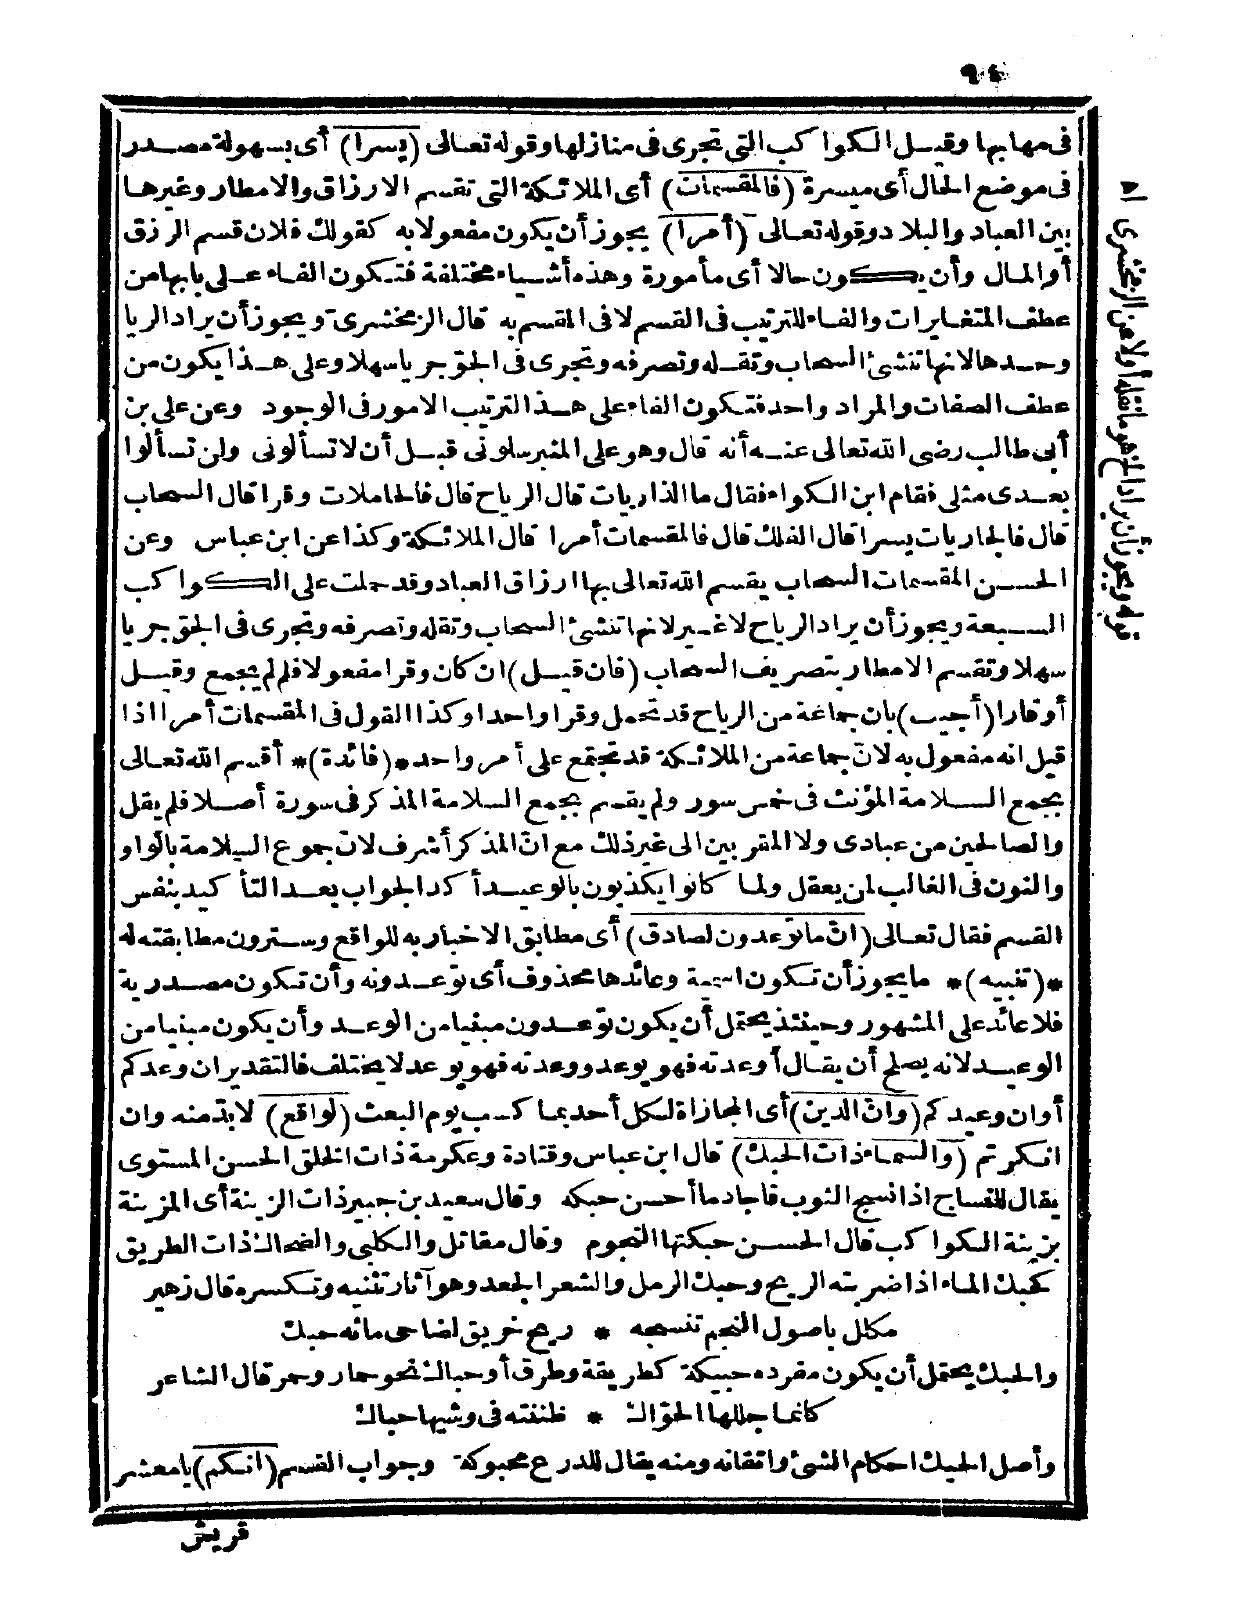 ٩٤
فى مهابها وقيل الكواكب التى تجرى فى منازلها وقوله تعالى (يسرا) أى بسهولة مصدر
فى موضع الحال أى ميسرة (فالمقسمات) أى الملائكة التى تقسم الارزاق والامطار وغيرها
بين العباد والبلاد وقوله تعالى (أمرا) يجوز أن يكون مفعولا به كقولك فلان قسم الرزق
أو المال وأن يكون حالا أى مأمورة وهذه أشياء مختلفة فتكون الفاء على بابها من
عطف المتغايرات والفاء للترتيب فى القسم لا فى المقسم به قال الزمخشرى ويجوز أن يراد الريا
وحدها لانها تنشئ السحاب وتقله وتصرفه وتجرى فى الجوّ جريا سهلا وعلى هذا يكون من
عطف الصفات والمراد واحد فتكون الفاء على هذا الترتيب الامور فى الوجود وعن على بن
أبى طالب رضى الله تعالى عنه أنه قال وهو على المنبر سلونى قبل أن لا تسألونى ولن تسألوا
بعدى مثلى فقام ابن الكواء فقال ما الذاريات قال الرياح قال فالحاملات وقرا قال السحاب
قال فالجاريات يسرا قال الفلك قال فالمقسمات أمرا قال الملائكة وكذا عن ابن عباس وعن
الحسن المقسمات السحاب يقسم الله تعالى بها ارزاق العباد وقد حملت على الكواكب
السبعة ويجوز أن يراد الرياح لا غير لانها تنشئ السحاب وتقله وتصرفه وتجرى فى الجوّ جريا
سهلا وتقسم الامطار بتصريف السحاب (فان قيل) ان كان وقرا مفعولا فلم لم يجمع وقيل
أوقارا (أجيب) بان جماعة من الرياح قد تحمل وقرا واحدا وكذا القول فى المقسمات أمرا اذا
قيل انه مفعول به لانّ جماعة من الملائكة قد تجتمع على أمر واحد *(فائدة)* أقسم الله تعالى
بجمع السلامة المؤنث فى خمس سور ولم يقسم بجمع السلامة المذكر فى سورة أصلا فلم يقل
والصالحين من عبادى ولا المقربين الى غير ذلك مع انّ المذكر أشرف لانّ جموع السلامة بالواو
والنون فى الغالب لمن يعقل ولما كانوا يكذبون بالوعيد أكد الجواب بعد التأكيد بنفس
القسم فقال تعالى (انّ ما توعدون لصادق) أى مطابق الاخبار به للواقع وسترون مطابقته له
*(تنبيه)* ما يجوز أن تكون اسمية وعائدها محذوف أى توعدونه وأن تكون مصدرية
فلا عائد على المشهور وحينئذ يحتمل أن يكون توعدون مبنيا من الوعد وأن يكون مبنيا من
الوعيد لانه يصلح أن يقال أوعدته فهو يوعد ووعدته فهو يوعد لا يختلف فالتقدير ان وعدكم
أو ان وعيدكم (وانّ الدين) أى المجازاة لكل أحد بما كسب يوم البعث (لواقع) لا بدّ منه وان
انكرتم (والسماء ذات الحبك) قال ابن عباس وقتادة وعكرمة ذات الخلق الحسن المستوى
يقال للنساج اذا نسج الثوب فاجاد ما أحسن حبكه وقال سعيد بن جبير ذات الزينة أى المزينة
بزينة الكواكب قال الحسن حبكتها النجوم وقال مقاتل والكلبى والضحاك ذات الطريق
كحبك الماء اذا ضربته الريح وحبك الرمل والشعر الجعد وهو آثار تثنيه وتكسره قال زهير
مكلل باصول النجم تنسجه * ريح خريق لضاحى مائه حبك
والحبك يحتمل أن يكون مفرده حبيكة كطريقة وطرق أو حباك نحو حمار وحمر قال الشاعر
كأنما جللها الحوّاك * طنفته فى وشيها حباك
وأصل الحبك احكام الشئ واتقانه ومنه يقال للدرع محبوكة وجواب القسم (انكم) يا معشر
قريش
قوله ويجوز أن يراد الخ هو ما نقله أولا عن الزمخشرى اه